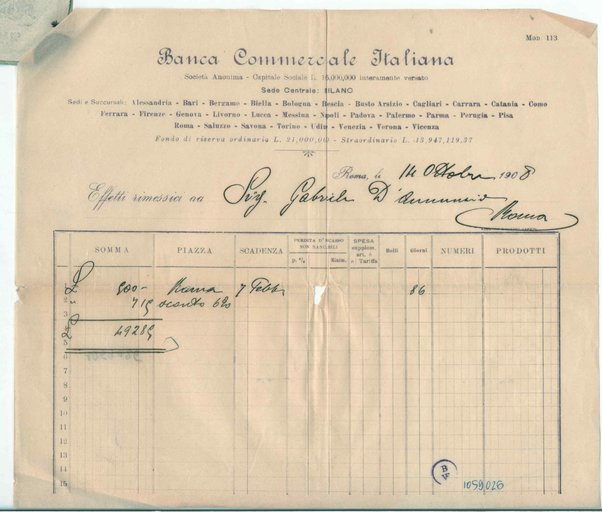 Mod 113
Banca Commerciale Italiana
Società Anonima - Capitale Sociale L. 105,000,000 interamente versato
Sede Centrale: MILANO
Sedi e Succursali: Alessandria - Bari - Bergamo - Biella - Bologna - Brescia - Busto Arsizio - Cagliari - Carrara - Catania - Como
Ferrara - Firenze - Genova - Livorno - Lucca - Messina - Napoli - Padova - Palermo - Parma - Perugia - Pisa
Roma - Saluzzo - Savona - Torino - Udine - Venezia - Verona - Vicenza
Fondo di riserva ordinaria L. 21,000,000 - Straordinario L. 13,947,119.37
Roma, li 14 Ottobre 1908
Effetti rimessici da Sig. Gabriele D'Annunzio
Roma
SOMMA PIAZZA SCADENZA PERDITA D'INCASSO NON BANCABILI SPESA supplem. Bolli Giorni NUMERI PRODOTTI
p. % e Tariffa
500- Roma 7 Febb. 86
715 sconto 6%
49285
2
3
5
6
7
8
9
10
11
12
13
14
15
BV
1059026